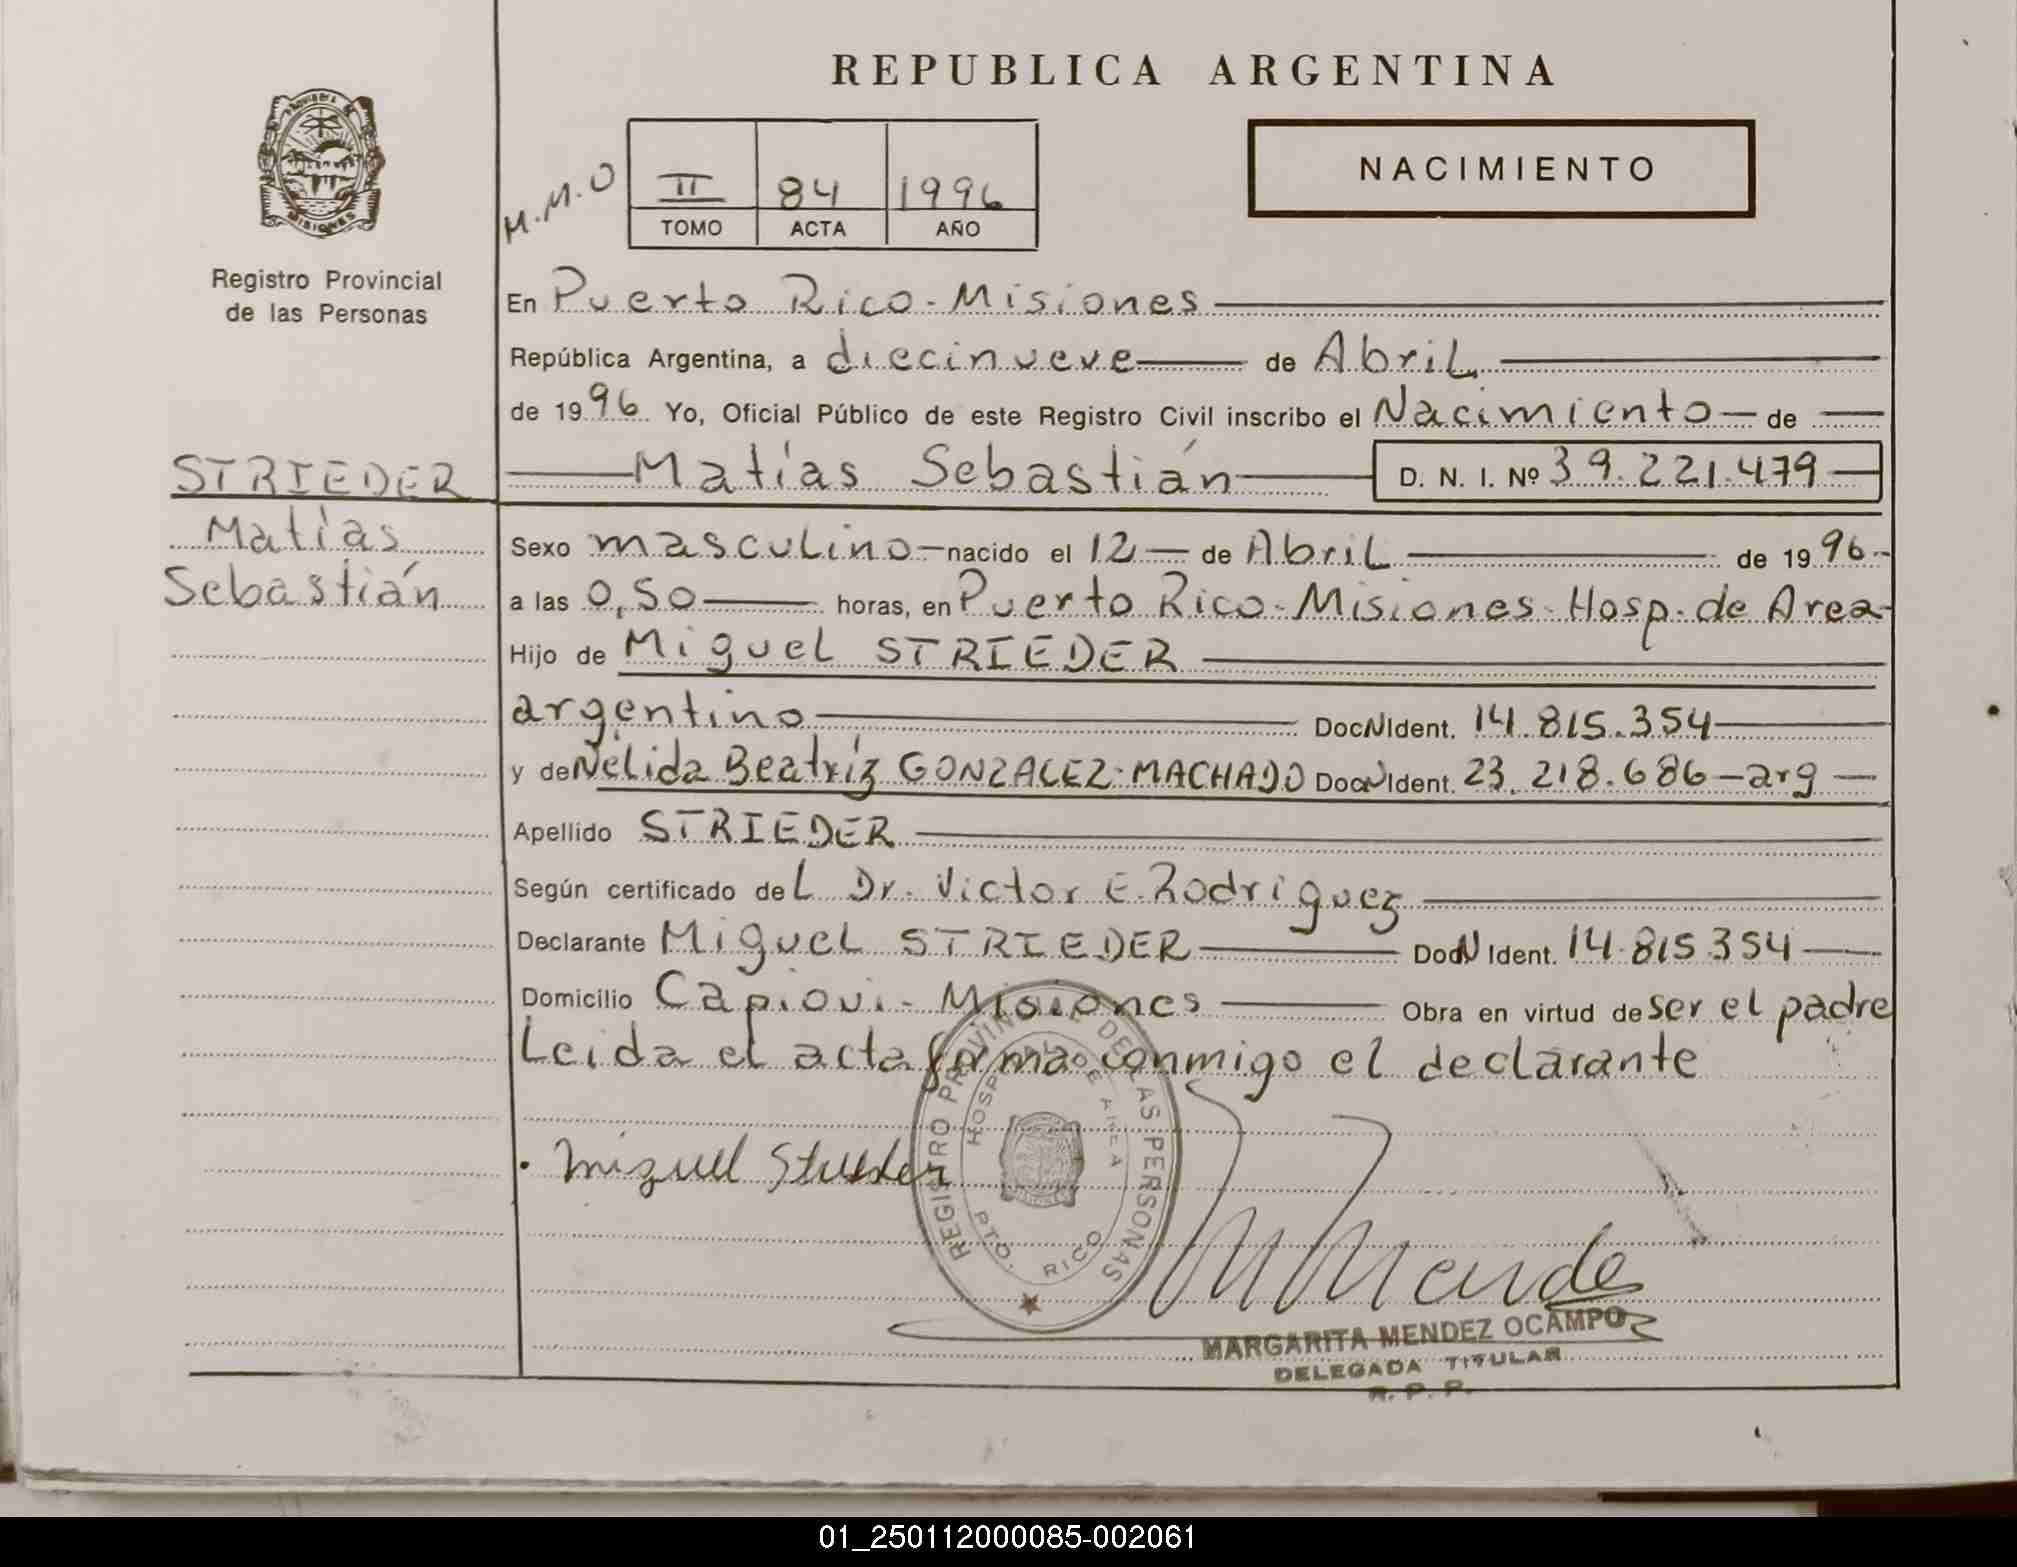 REPUBLICA ARGENTINA
NACIMIENTO
M.M.O
II 84 1996
TOMO ACTA AÑO
PROVINCIA DE
MISIONES
Registro Provincial
de las Personas
STRIEDER
Matías
Sebastián
En Puerto Rico - Misiones
República Argentina, a diecinueve de Abril
de 1996 Yo, Oficial Público de este Registro Civil inscribo el Nacimiento de
Matías Sebastián D. N. I. Nº 39.221.479
Sexo masculino nacido el 12 de Abril de 1996
a las 0,50 horas, en Puerto Rico - Misiones - Hosp. de Area
Hijo de Miguel STRIEDER
argentino Doc N Ident. 14.815.354
y de Nélida Beatríz GONZALEZ MACHADO Doc N Ident. 23.218.686 - arg
Apellido STRIEDER
Según certificado del Dr. Victor E. Rodriguez
Declarante Miguel STRIEDER Doc N Ident. 14.815.354
Domicilio Capiovi - Misiones Obra en virtud de ser el padre
Leida el acta firma conmigo el declarante
REGISTRO PROVINCIAL DE LAS PERSONAS
HOSPITAL DE AREA
PTO. RICO
Miguel Strieder
MMende
MARGARITA MENDEZ OCAMPO
DELEGADA TITULAR
R. P. P.
01_250112000085-002061